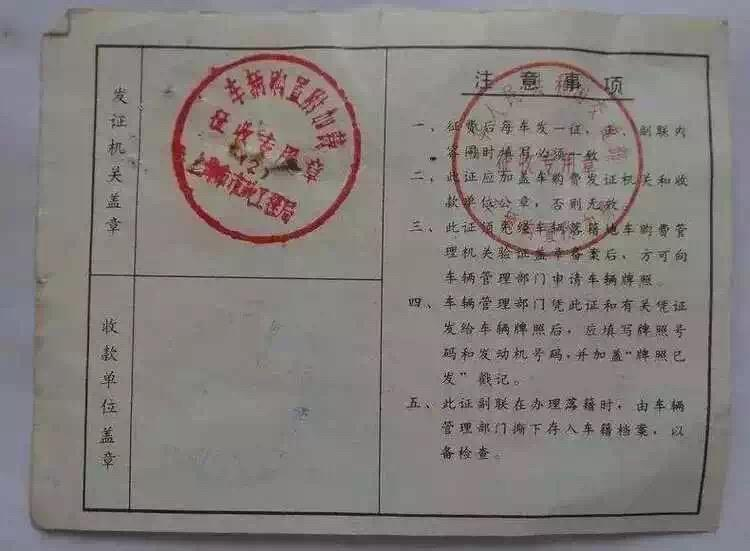 发证机关盖章
车辆购置附加费
征收专用章
收款单位盖章
注意事项
一、征费后每车发一证，正、副联内
容同时填写必须一致
二、此证应加盖车购费发证机关和收
款单位公章，否则无效。
三、此证须先经车辆落籍地车购费管
理机关验证盖章备案后，方可向
车辆管理部门申请车辆牌照。
四、车辆管理部门凭此证和有关凭证
发给车辆牌照后，应填写牌照号
码和发动机号码，并加盖“牌照已
发”戳记。
五、此证副联在办理落籍时，由车辆
管理部门撕下存入车籍档案，以
备检查。